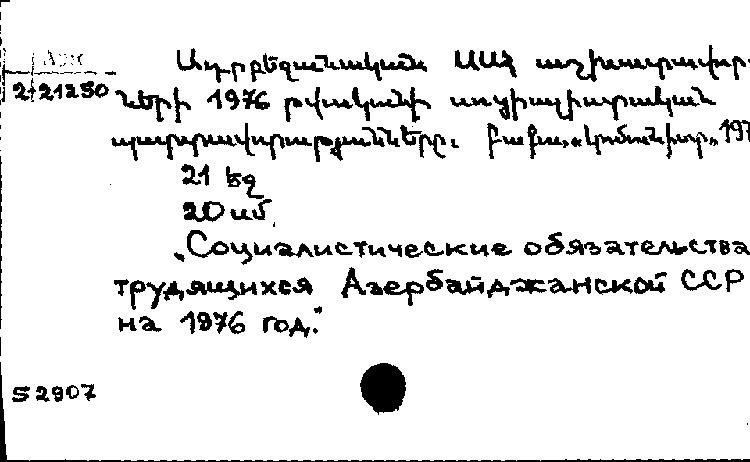 Ադրբեջանական ՍՍՀ աշխատավոր-
2-21250 ների 1976 թվականի սոցիալիստական
պարտավորությունները. Բաքու, «Կոմունիստ», 197
21 եջ
20 սմ
„Социалистические обязательства
трудящихся Азербайджанской ССР
на 1976 год."
S 2907